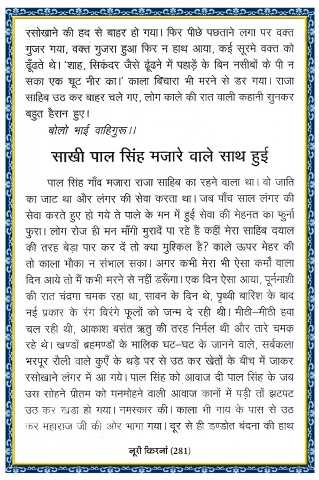 रसोखाने की हद से बाहर हो गया। फिर पीछे पछताने लगा पर वक्त
गुजर गया, वक्त गुजरा हुआ फिर न हाथ आया, कई सूरमे वक्त को
ढूँढते थे। 'शाह, सिकंदर जैसे ढूंढने में पहाड़ें के बिन नसीबों के पी न
सका एक घूट नीर का।' काला बिंचारा भी मरने से डर गया। राजा
साहिब उठ कर बाहर चले गए, लोग काले की रात वाली कहानी सुनकर
बहुत हैरान हुए।
बोलो भाई वाहिगुरू।।
साखी पाल सिंह मजारे वाले साथ हुई
पाल सिंह गाँव मजारा राजा साहिब का रहने वाला था। वो जाति
का जाट था और लंगर की सेवा करता था। जब पाँच साल लंगर की
सेवा करते हुए हो गये ते पाले के मन में हुई सेवा की मेहनत का फुर्ना
फुरा। लोग रोज ही मन माँगी मुरादें पा रहे हैं कहीं मेरा साहिब दयाल
की तरह बेड़ा पार कर दें तो क्या मुश्किल है? काले ऊपर मेहर की
तो काला मौका न संभाल सका। अगर कभी मेरा भी ऐसा कर्मो वाला
दिन आये तो मैं कभी मरने से नहीं डरूँगा। एक दिन ऐसा आया, पूर्नमाशी
की रात चंद्रमा चमक रहा था, सावन के दिन थे, पृथ्वी बारिश के बाद
नई प्रकार के रंग बिरंगे फूलों को जन्म दे रही थी। मीठी-मीठी हवा
चल रही थी, आकाश बसंत ऋतु की तरह निर्मल थी और तारे चमक
रहे थे। खण्डों ब्रहमण्डों के मालिक घट-घट के जानने वाले, सर्बकला
भरपूर रौली वाले कुएँ के थड़े पर से उठ कर खेतों के बीच में जाकर
रसोखाने लंगर में आ गये। पाल सिंह को आवाज दी पाल सिंह के जब
उस सोहने प्रीतम को मनमोहने वाली आवाज कानों में पड़ी तों झटपट
उठ कर खड़ा हो गया। नमस्कार की। काला भी गाय के पास से उठ
कर महाराज जी की ओर भागा गया। दूर से ही डण्डोत बंदना की हाथ
नूरी किरनां (281)